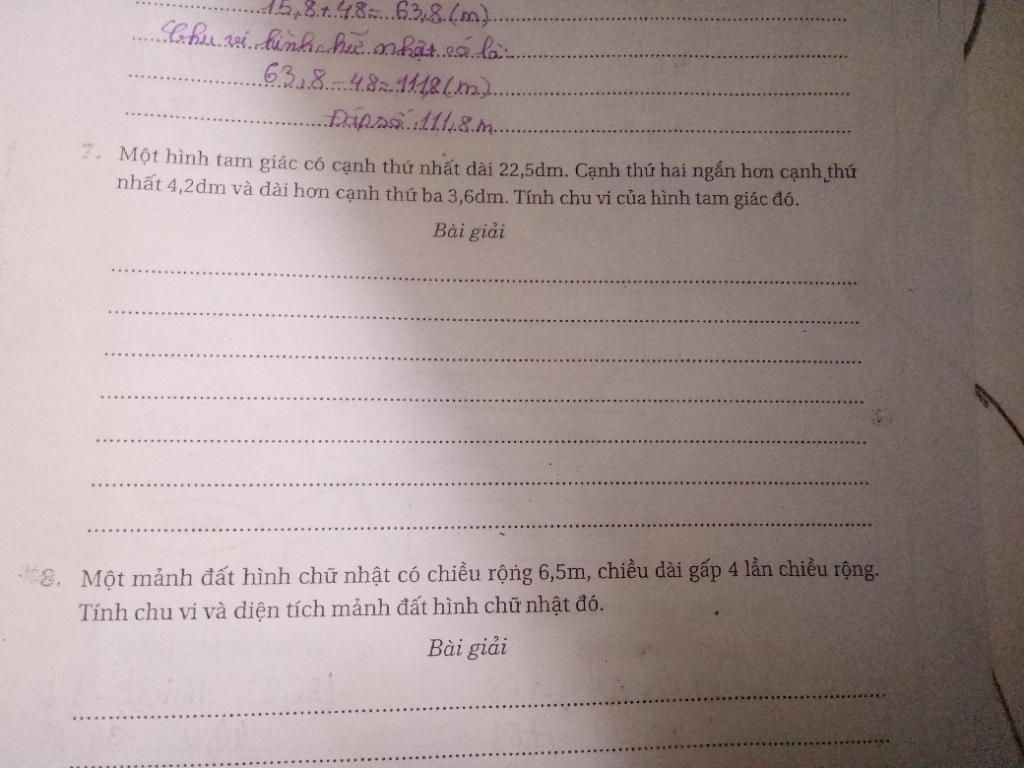 15,8 + 48 = 63,8 (m)
Chu vi hình chữ nhật có là:
63,8 - 48 = 111,8 (m)
Đáp số: 111,8 m
7. Một hình tam giác có cạnh thứ nhất dài 22,5dm. Cạnh thứ hai ngắn hơn cạnh thứ
nhất 4,2dm và dài hơn cạnh thứ ba 3,6dm. Tính chu vi của hình tam giác đó.
Bài giải
8. Một mảnh đất hình chữ nhật có chiều rộng 6,5m, chiều dài gấp 4 lần chiều rộng.
Tính chu vi và diện tích mảnh đất hình chữ nhật đó.
Bài giải